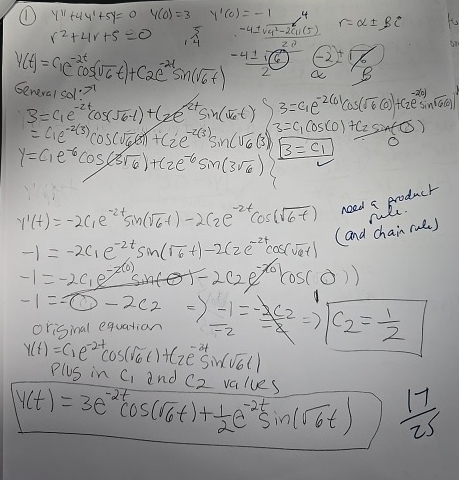 ① y''+4y'+5y=0 y(0)=3 y'(0)=-1
r²+4r+5=0
-4±√4²-2(1)(5) 4
2.0
r=α±βi
-4±√6
2
-2±√6
α β
y(t)=c₁e^-2t cos(√6t)+c₂e^-2t sin(√6t)
General sol:↗
3=c₁e^-2t cos(√6t)+c₂e^-2t sin(√6t)
=c₁e^-2(3)cos(√6(3))+c₂e^-2(3)sin(√6(3))
y=c₁e^-6cos(3√6)+c₂e^-6sin(3√6)
3=c₁e^-2(0)cos(√6(0))+c₂e^-2(0)sin(√6(0))
3=c₁cos(0)+c₂sin(0)
0
3=c₁
✓
y'(t)=-2c₁e^-2t sin(√6t)-2c₂e^-2t cos(√6t)
need a product
rule.
(and chain rule)
-1=-2c₁e^-2t sin(√6t)-2c₂e^-2t cos(√6t)
-1=-2c₁e^-2(0)sin(0)-2c₂e^-2(0)cos(0))
1
-1=-0-2c₂ => -1=-2c₂ => c₂=1/2
-2 -2
original equation
y(t)=c₁e^-2t cos(√6t)+c₂e^-2t sin(√6t)
Plug in c₁ and c₂ values
y(t)=3e^-2t cos(√6t)+1/2e^-2t sin(√6t)
17/25